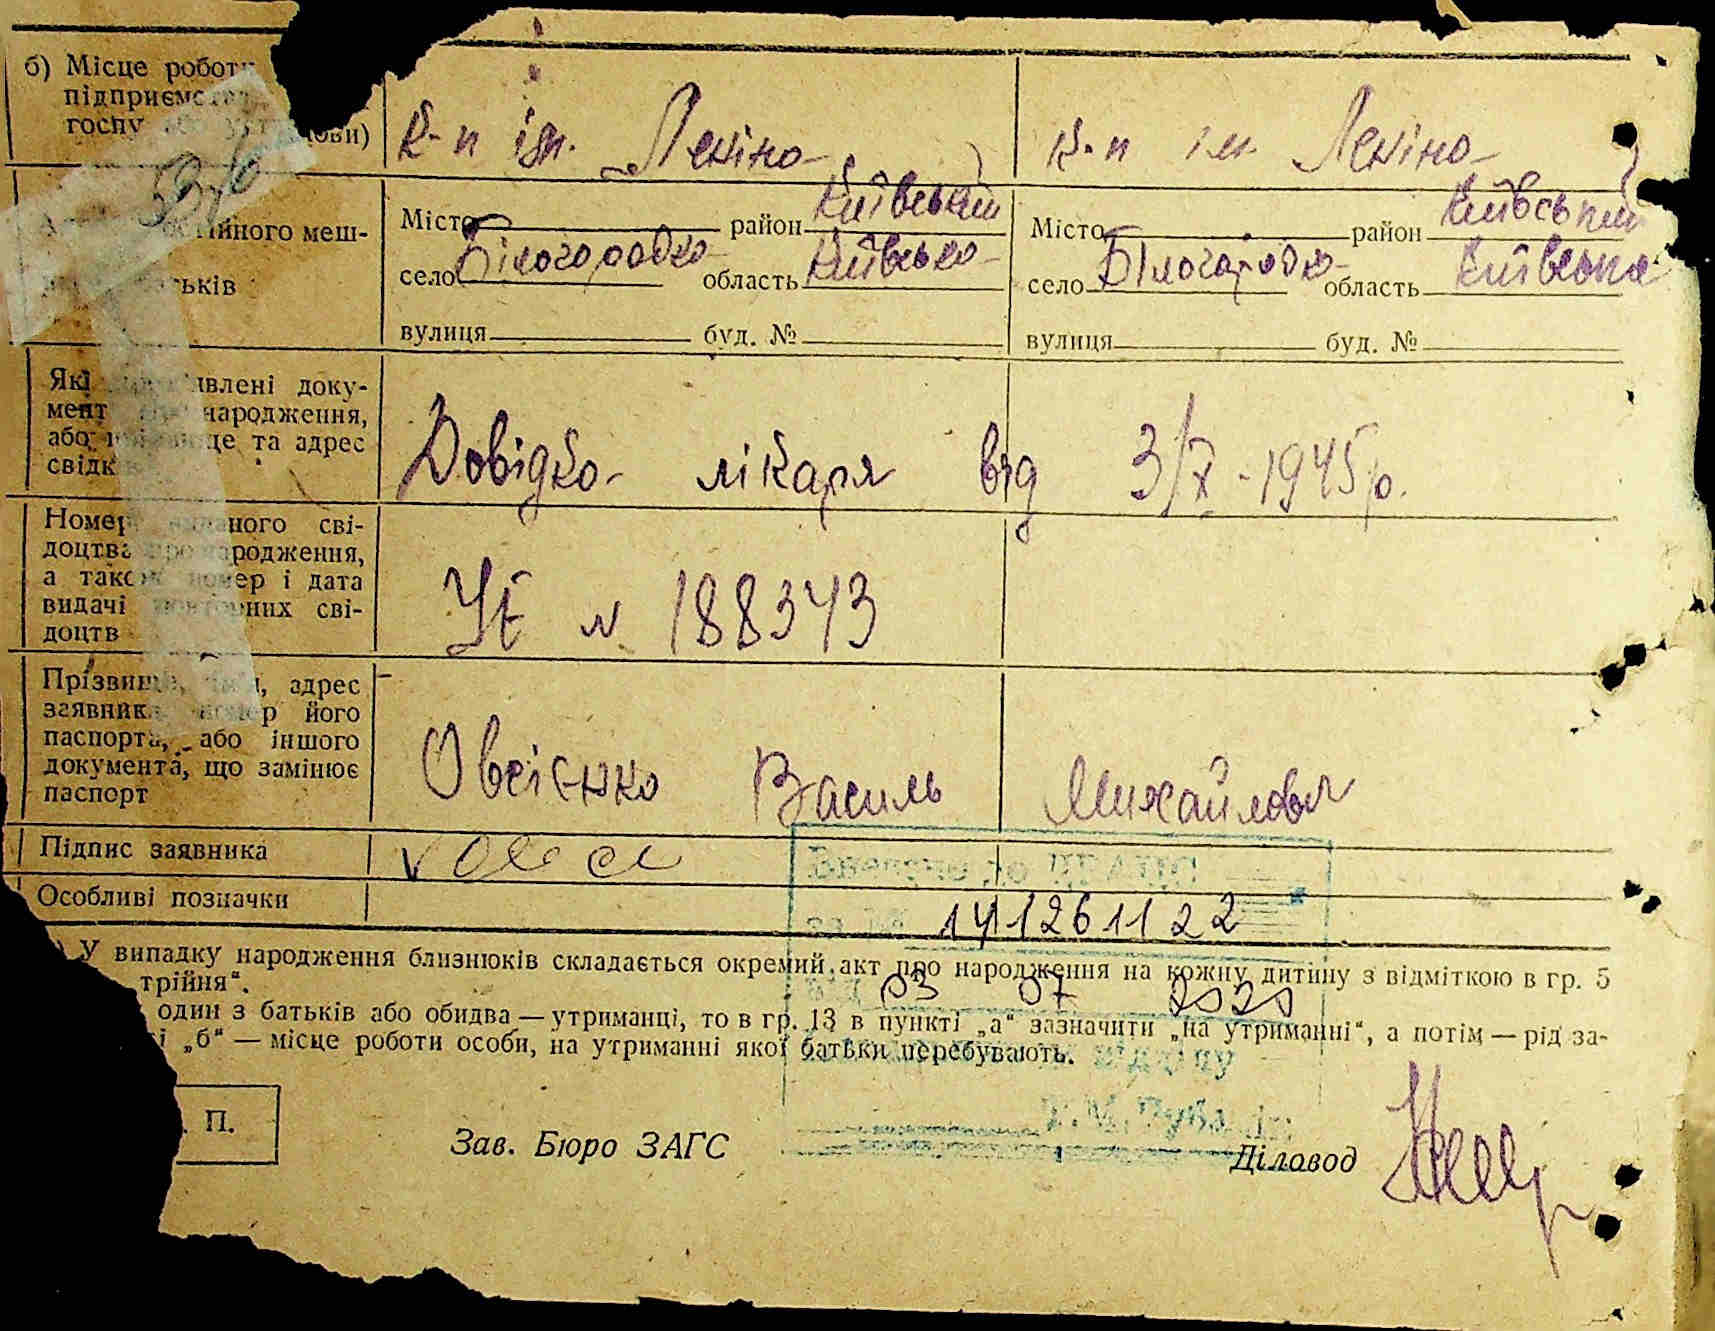 б) Місце роботи
підприємства,
госпу або установи)
К-п ім. Леніна
К-п ім. Леніна
постійного меш-
батьків
Місто район Київський
село Білогородка область Київська
вулиця буд. №
Місто район Київський
село Білогородка область Київська
вулиця буд. №
Які пред'явлені доку-
менти про народження,
або прізвище та адрес
свідків
Довідка лікаря від 3/X-1945р.
Номер виданого сві-
доцтва про народження,
а також номер і дата
видачі повторних сві-
доцтв
УЕ № 188343
Прізвище, ім'я, адрес
заявника, номер його
паспорта, або іншого
документа, що замінює
паспорт
Овсієнко Василь Михайлович
Підпис заявника
Особливі позначки
1412611 22
03 07 2020
) У випадку народження близнюків складається окремий акт про народження на кожну дитину з відміткою в гр. 5
трійня".
один з батьків або обидва — утриманці, то в гр. 13 в пункті „а" зазначити „на утриманні", а потім — рід за-
і „б" — місце роботи особи, на утриманні якої батьки перебувають.
. П.
Зав. Бюро ЗАГС
Діловод